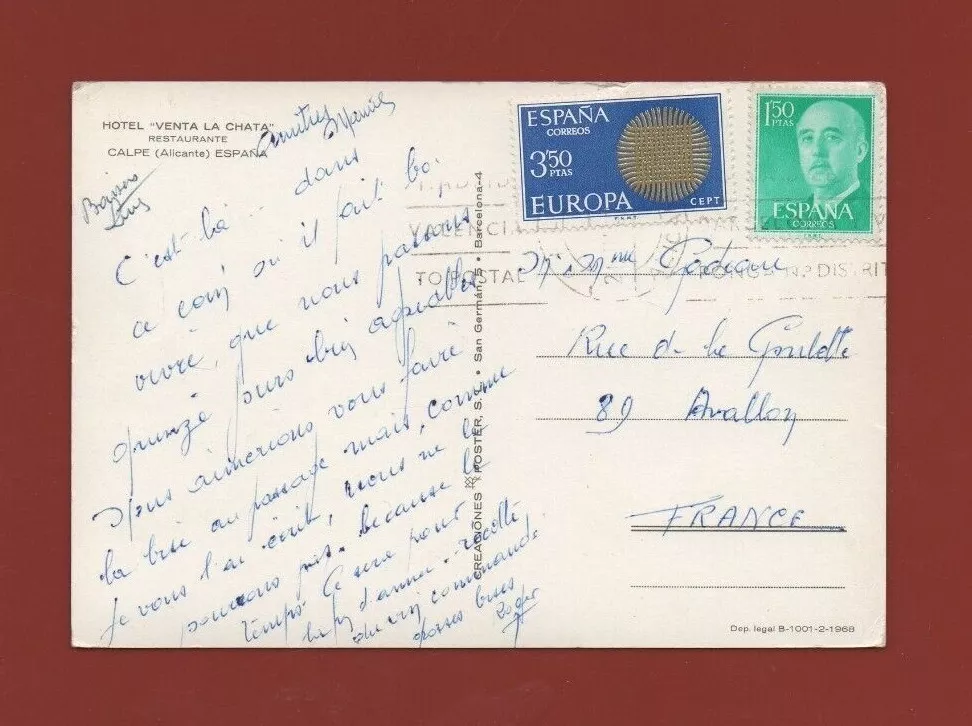 HOTEL "VENTA LA CHATA"
RESTAURANTE
CALPE (Alicante) ESPAÑA
amitiés
C'est là dans
ce coin où il fait bo
vivre, que nous passons
quinze jours bien agréables
Nous aimerions vous faire
la bise au passage mais, comme
je vous l'ai écrit, nous ne le
pouvons pas. because le
temps. Ce sera pour
la fin d'année. récolte
du vin commande
grosses bises
Roger
CREACIONES POSTER, S. • San Germán, 5 • Barcelona-4
ESPAÑA
CORREOS
3'50
PTAS
EUROPA
CEPT
1'50
PTAS
ESPAÑA
CORREOS
VALENCIA
TO POSTAL
PONGA Nº DISTRIT
Mr Mme
Rue de la Goulotte
89 Avallon
FRANCE
Dep. legal B-1001-2-1968